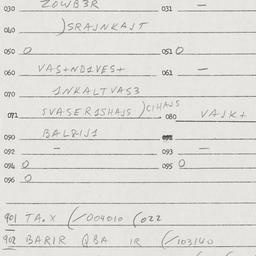 030 ZOWB3R 031 —
040 )SRAJNKAJT
050 0 051 0
060 VAS+ND1VES+ 061 —
070 JNKALTVAS3
071 SVASER1SHAJS )CIHAJS 080 VAJK+
090 BAL8IJ1
092 — 093 —
094 0 095 0
096 0
901 TA.X (/004010 (022
902 BARIR QBA IR (/103140